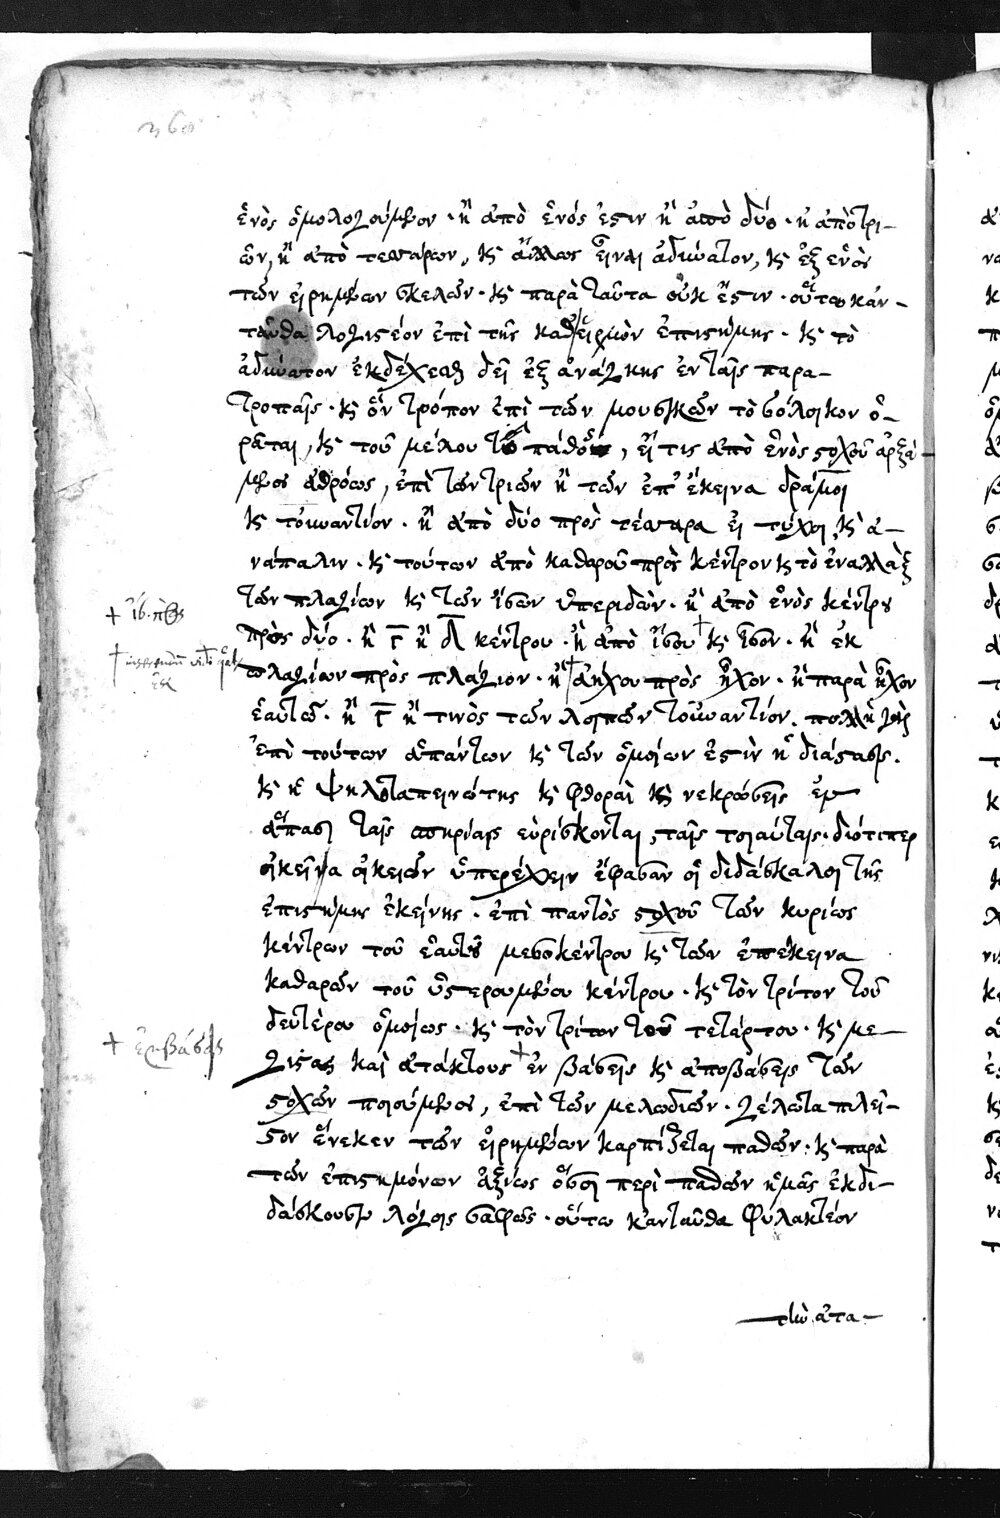 ἑνὸς ὁμολογούμενον · ἢ ἀπὸ ἑνός ἐστιν ἢ ἀπὸ δύο · ἢ ἀπὸ τρι-
ῶν, ἢ ἀπὸ τεσσάρων, κ ἄλλως εἶναι ἀδύνατον, κ ἐξ ἑνὸς
τῶν εἰρημένων σκελῶν · κ παρὰ ταῦτα οὐκ ἔστιν · οὕτω κἀν-
ταῦθα λογιστέον ἐπὶ τῆς καθ εἱρμὸν ἐπιστήμης · κ τὸ
ἀδύνατον ἐκδέχεσθαι δεῖ ἐξ ἀνάγκης ἐν ταῖς παρα-
τροπαῖς · κ ὃν τρόπον ἐπὶ τῶν μουσικῶν τὸ σόλοικον ὁ-
ρᾶται, κ τοῦ μέλου τὸ πάθος, εἴ τις ἀπὸ ἑνὸς στοχοῦ ἀρξά-
μενος ἀθρόως, ἐπὶ τῶν τριῶν ἢ τῶν ἐπ' ἐκεινα δράμοι
κ τοὐναντίον · ἢ ἀπὸ δύο πρὸς τέσσαρα εἰ τύχοι, κ ἀ-
νάπαλιν · κ τούτων ἀπὸ καθαροῦ πρὸς κέντρον κ τὸ ἐναλλὰξ
τῶν πλαγίων κ τῶν ἴσων ὑπεριδὼν · ἢ ἀπὸ ἑνὸς κέντρου
πρὸς δύο · ἢ γ ἢ δ κέντρου · ἢ ἀπὸ ἴσου κ ἴσον · ἢ ἐκ
πλαγίων πρὸς πλάγιον · ἢ ἀπήχου πρὸς ἦχον · ἢ παρὰ ἦχον
ἑαυτοῦ · ἢ γ ἢ τινὸς τῶν λοιπῶν τοὐναντίον · πολλὴ
ἐπὶ τούτων ἁπάντων κ τῶν ὁμοίων ἐστὶν ἡ διάστασις ·
κ ἡ ὑψηλοταπεινώτης κ φθοραὶ κ νεκρώσεις ἐν
ἁπάσαι ταῖς ταῖς τοιαύταις · διότιπερ εὑρίσκονται
οἰκεῖα οἰκειῶν ὑπερέχειν ἔφασαν οἱ διδάσκαλοι τῆς
ἐπιστήμης ἐκείνης · ἐπὶ παντὸς στοχοῦ τῶν κυρίως
κέντρων τοῦ ἑαυτοῦ μεσοκέντρου κ τῶν ἐπέκεινα
καθαρῶν τοῦ ὑστερουμένου κέντρου · κ τὸν τρίτον τοῦ
δευτέρου ὁμοίως · κ τὸν τρίτον τοῦ τετάρτου · κ με-
γίστας καὶ ἀτάκτους ἐν βάσεις κ ἀποβάσεις τῶν
στοχῶν ποιούμενος, ἐπὶ τῶν μελωδιῶν · γέλωτα πλεῖ-
στον ἕνεκεν τῶν εἰρημένων καρπίζεται παθῶν · κ παρὰ
τῶν ἐπιστημόνων ἀξίως ὅσοι περὶ παθῶν ἡμᾶς ἐκδι-
δάσκουσι λόγοις σαφῶς · οὕτω κἀνταῦθα φυλακτέον
τὴν ἀτα-
+ ἐμβάσεις